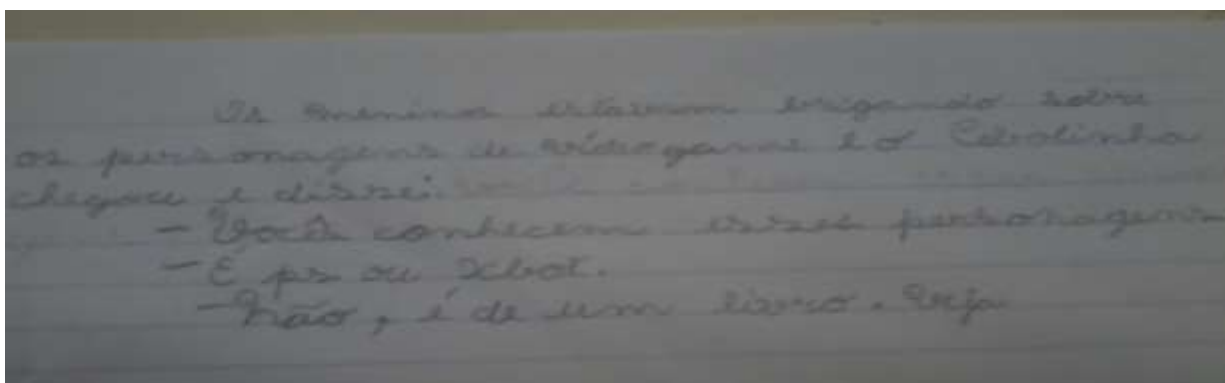 Os meninos estavam brigando sobre
os personagens de vídeogame e o Cebolinha
chegou e disse:
- Vocês conhecem esses personagens
- É ps ou Xbot.
- Não, é de um livro. Veja